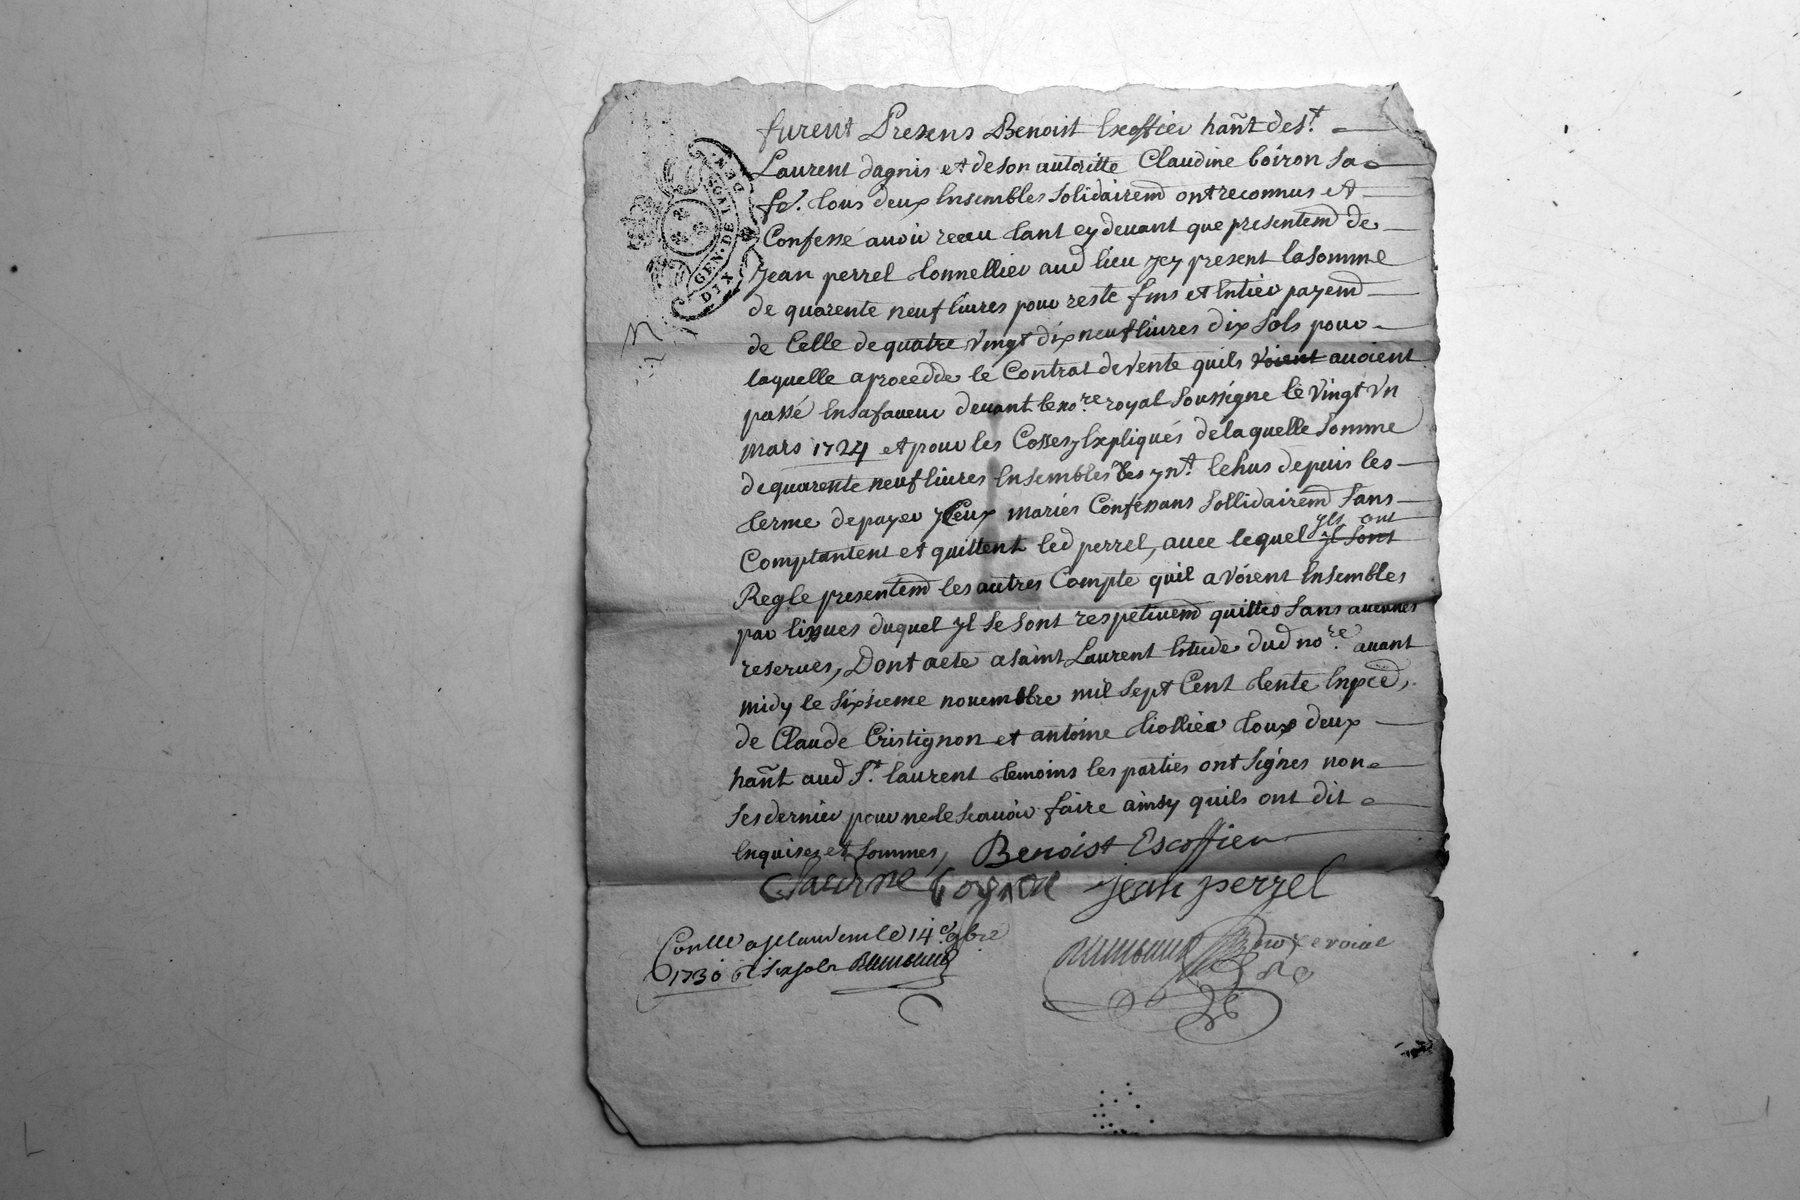 furent Presens Benoist Escoffier hañt de St.
Laurent dagnis et de son autoritte Claudine boiron sa
fe. tous deux Ensembles solidairemd ont reconnus et
Confessé avoir receu tant cy devant que presentemd de
Jean perrel tonnellier aud lieu ycy present la somme
de quarente neuf livres pour reste fins et Entier payemd
de Celle de quatre vingt dix neuf livres dix sols pour
laquelle a procedde le Contrat de vente quils voient avoient
passé En sa faveur devant le no.re royal soussigne le vingt vn
mars 1724 et pour les Causes y Expliqués de laquelle somme
de quarente neuf livres Ensembles des ynt. Echus depuis les
terme de payer yceux mariés Confessans sollidairemd sans
yls ont
Comptantent et quittent led perrel, avec lequel yl sont
Regle presentemd les autres Compte quil avoient Ensembles
par lissues duquel yl se sont respetivemd quittes sans aucunes
reserves, Dont acte a saint Laurent Estude dud no.re avant
midy le sixsieme novembre mil sept Cent trente En pred,
de Claude Cristignon et antoine tiollier tous deux
hañt aud St. laurent temoins les parties ont signes non
ses dernier pour ne le scavoir faire ainsy quils ont dit
Enquises et sommes, Benoist Escoffier
Claudine boyron Jean perrel
Conlle a St laurent le 14e 9bre
1730 R six sols
no.re roial
GEN. DE LYON
DIX DEN.